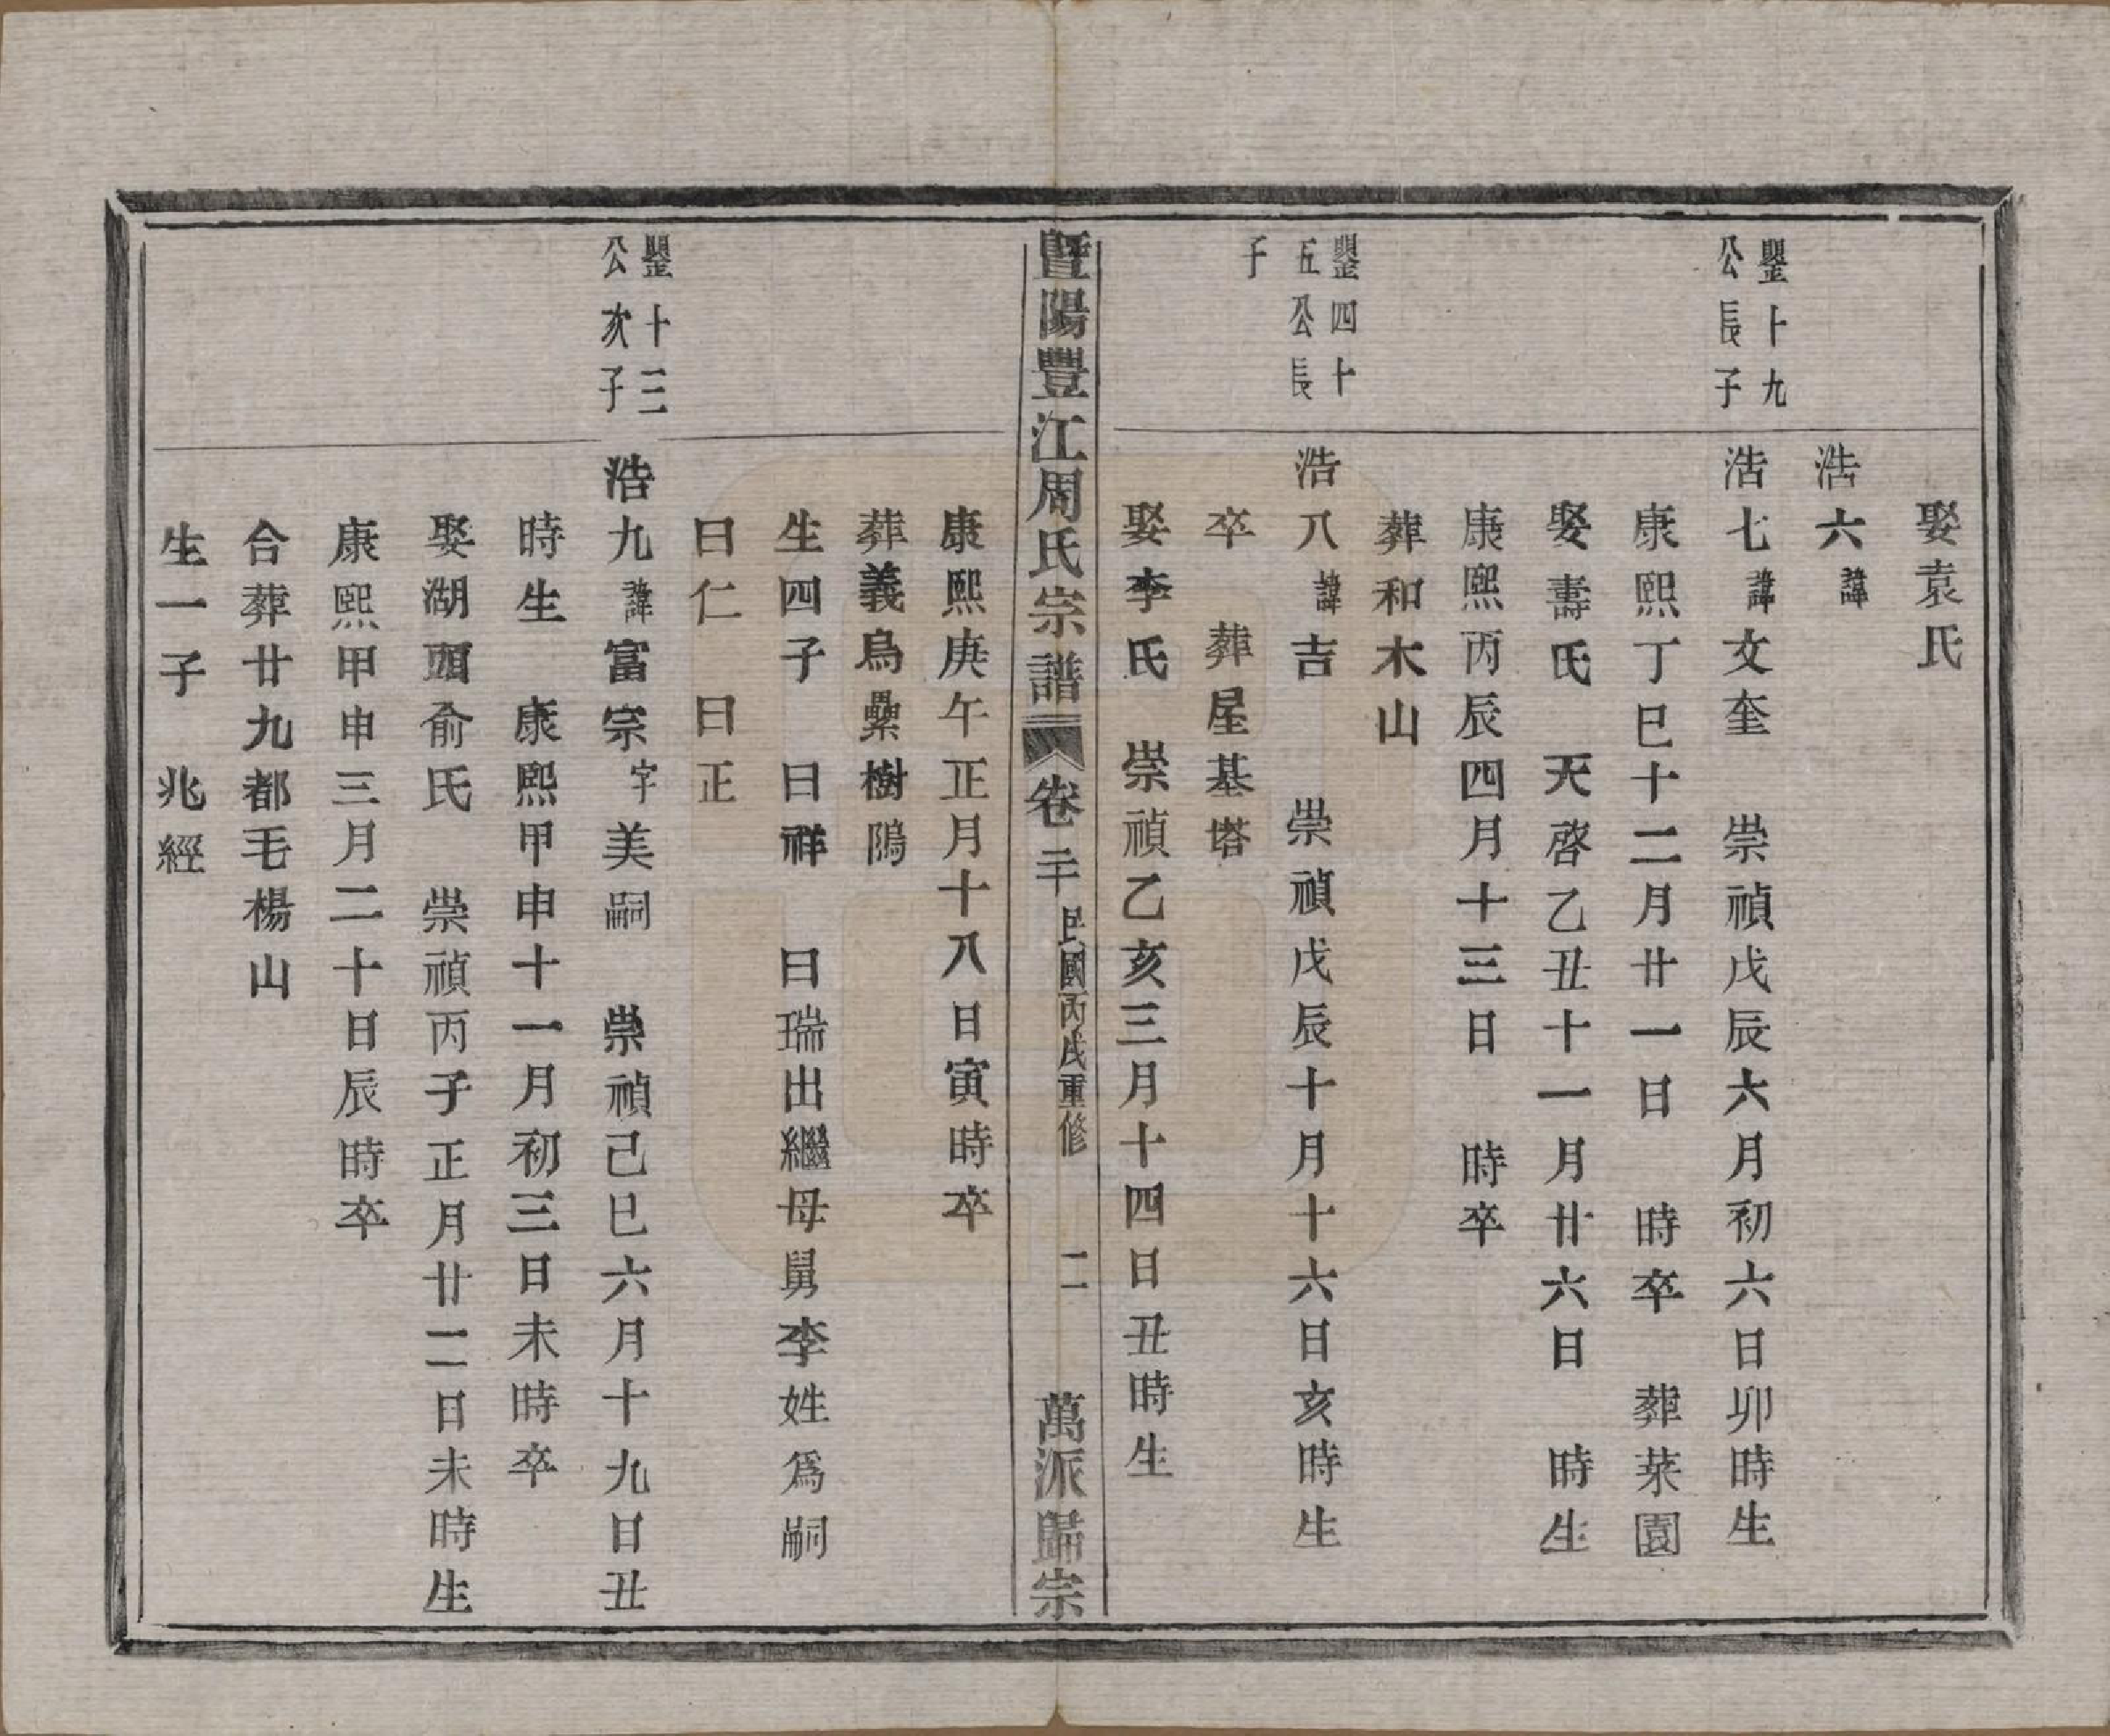 娶袁氏
浩六諱
鑍十九
公長子
浩七諱文奎　崇禎戊辰六月初六日卯時生
康熙丁巳十二月廿一日　時卒　葬菜園
娶壽氏　天啓乙丑十一月廿六日　時生
康熙丙辰四月十三日　時卒
葬和木山
四十
五公長
子
浩八諱吉　崇禎戊辰十月十六日亥時生
卒　葬屋基塔
娶李氏　崇禎乙亥三月十四日丑時生
暨陽豐江周氏宗譜　卷二十　民國丙戌重修　二　萬派歸宗
康熙庚午正月十八日寅時卒
葬義烏櫐樹隖
生四子　曰祥　曰瑞出繼母舅李姓爲嗣
曰仁　曰正
十三
公次子
浩九諱富宗字美嗣　崇禎己巳六月十九日丑
時生　康熙甲申十一月初三日未時卒
娶湖頭俞氏　崇禎丙子正月廿二日未時生
康熙甲申三月二十日辰時卒
合葬廿九都毛楊山
生一子　兆經